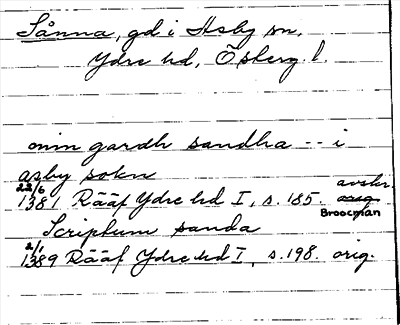 Sånna, gd i Asby sn,
Ydre hd, Österg. l.
min gardh sandha -- i
asby sokn
22/6 avskr.
1381 Rääf Ydre hd I, s. 185. orig.
Broocman
Scriptum sanda
2/1
1389 Rääf Ydre hd I, s. 198. orig.